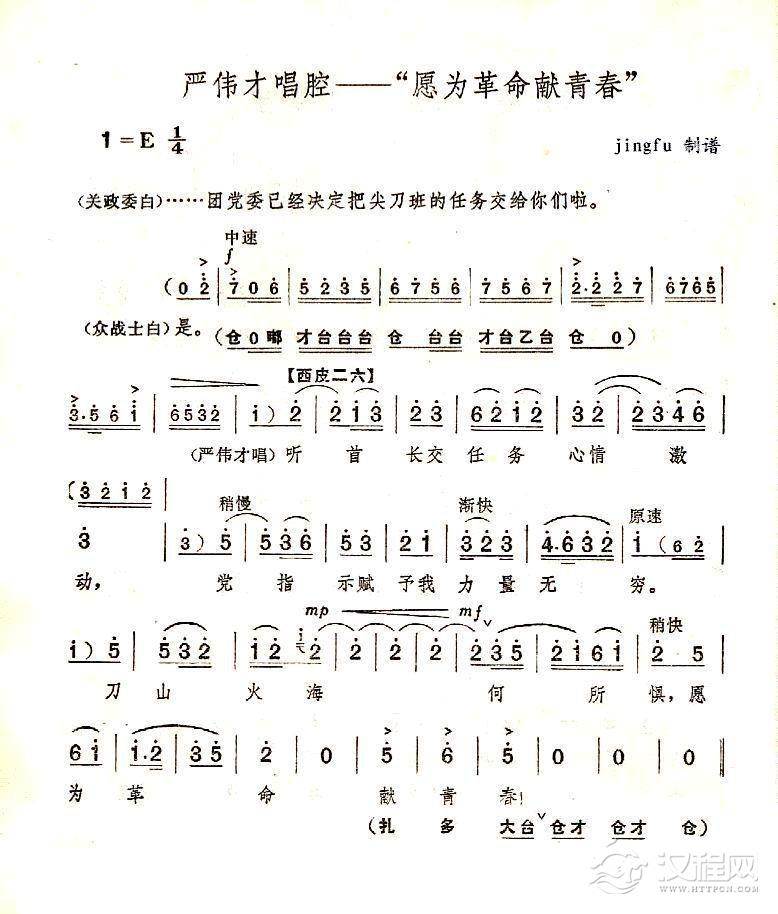 严伟才唱腔——“愿为革命献青春”
1=E 1/4
jingfu 制谱
(关政委白)……团党委已经决定把尖刀班的任务交给你们啦。
中速
f
(0 2 | 7 0 6 | 5 2 3 5 | 6 7 5 6 | 2 7 5 6 | 7 2 7 6 | 2·2 2 7 | 6765
(众战士白)是。(仓 0 嘟 才台台台 仓 台台 才台乙台 仓 0)
【西皮二六】
3·5 6 1 | 6532 | 1) 2 | 2 1 3 | 2 3 | 6 2 1 2 | 3 2 | 2 3 4 6
(严伟才唱)听 首 长交 任 务 心情 激
(3 2 1 2
稍慢 渐快 原速
3 | 3) 5 | 5 3 6 | 5 3 | 2 1 | 3 2 3 | 4·6 3 2 | 1 (6 2
动, 党 指 示赋 予我 力 量 无 穷。
mp mf
稍快
1) 5 | 5 3 2 | 2 2 | 2 | 2 | 2 | 2 3 5 | 2 1 6 1 | 2 5
刀 山 火 海 何 所 惧,愿
6 1 | 1·2 | 3 5 | 2 | 0 | 5 | 6 | 5 | 0 | 0
为 革 命 献 青 春!
(扎 多 大台 仓才 仓才 仓)
汉程网
WWW.HTTPCN.COM